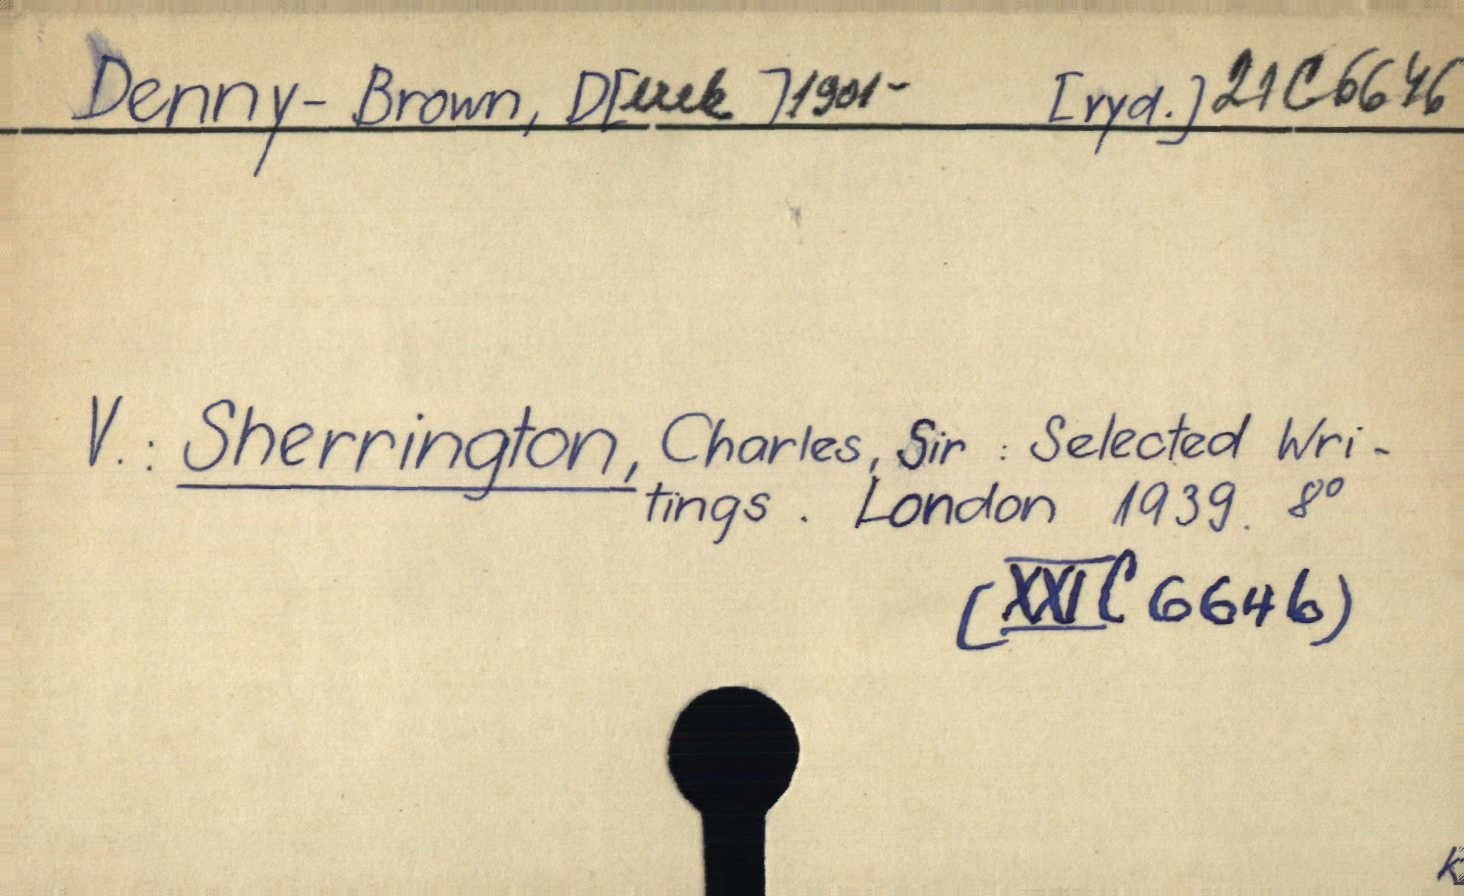 Denny-Brown, D[erek] 1901- [vyd.] 21 C 6646
V.: Sherrington, Charles, Sir : Selected Wri-
tings. London 1939. 8°
(XXI C 6646)
K